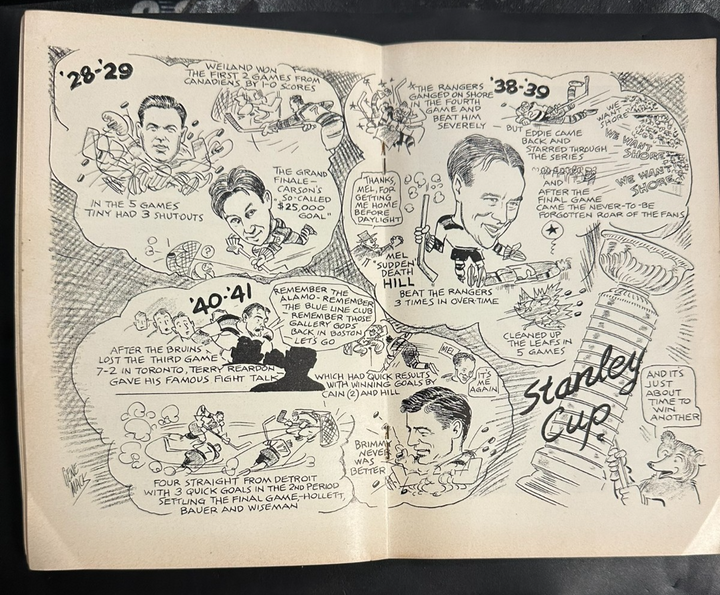 '28-'29
WEILAND WON
THE FIRST 2 GAMES FROM
CANADIENS BY 1-0 SCORES
IN THE 5 GAMES
TINY HAD 3 SHUTOUTS
THE GRAND
FINALE-
CARSON'S
"SO-CALLED
$25,000
GOAL"
?
'38-'39
THE RANGERS
GANGED ON SHORE
IN THE FOURTH
GAME AND
BEAT HIM
SEVERELY -
BUT EDDIE CAME
BACK AND
STARRED THROUGH
THE SERIES
AND
AFTER THE
FINAL GAME
CAME THE NEVER-TO-BE
FORGOTTEN ROAR OF THE FANS
WE
WANT
SHORE
WE WANT
SHORE
WE WANT
SHORE
THANKS,
MEL, FOR
GETTING
ME HOME
BEFORE
DAYLIGHT
MEL
"SUDDEN"
DEATH
HILL
BEAT THE RANGERS
3 TIMES IN OVERTIME
CLEANED UP
THE LEAFS IN
5 GAMES
'40-'41
REMEMBER THE
ALAMO-REMEMBER
THE BLUE LINE CLUB
REMEMBER THOSE
GALLERY GODS
BACK IN BOSTON
LETS GO
AFTER THE BRUINS
LOST THE THIRD GAME
7-2 IN TORONTO, TERRY REARDON
GAVE HIS FAMOUS FIGHT TALK
WHICH HAD QUICK RESULTS
WITH WINNING GOALS BY
CAIN (2) AND HILL
MEL
IT'S
ME
AGAIN
BRIMM
NEVER
WAS
BETTER
FOUR STRAIGHT FROM DETROIT
WITH 3 QUICK GOALS IN THE 2ND PERIOD
SETTLING THE FINAL GAME-HOLLETT,
BAUER AND WISEMAN
GENE
MACK
Stanley
Cup
AND IT'S
JUST
ABOUT
TIME TO
WIN
ANOTHER